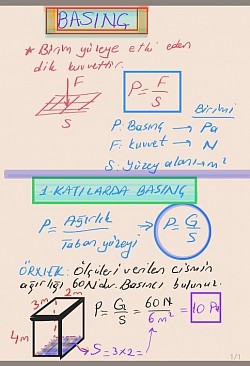 BASINÇ
* Birim yüzeye etki eden
dik kuvvettir.
F
S
P = F/S
Birimi
P: Basınç → Pa
F: kuvvet → N
S: Yüzey alanı → m²
1-KATILARDA BASINÇ
P = Ağırlık / Taban yüzeyi → P = G/S
ÖRNEK: Ölçüleri verilen cismin
ağırlığı 60N'dur. Basıncı bulunuz.
3m 2m
4m
P = G/S = 60N / 6m² = 10 Pa
S = 3x2 =
1/1